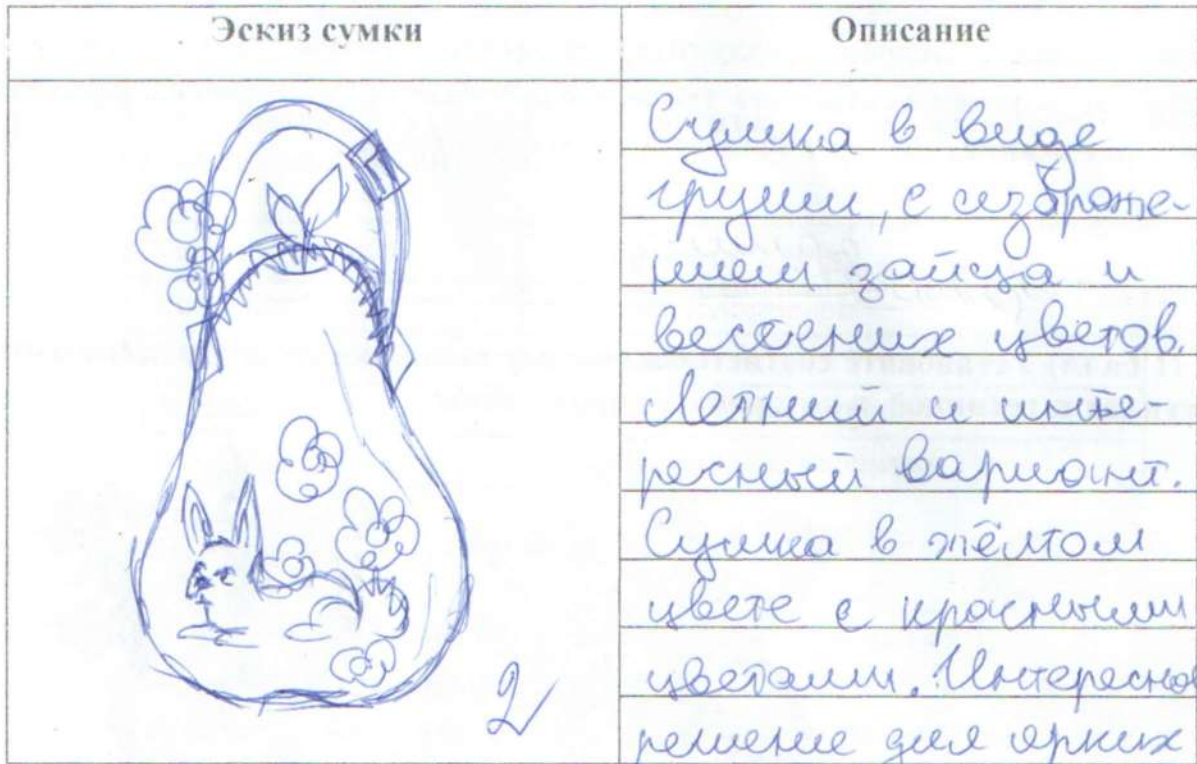 Эскиз сумки
Описание
Сумка в виде
груши, с изображе-
нием зайца и
весенних цветов.
Летний и инте-
ресный вариант.
Сумка в жёлтом
цвете с красными
цветами. Интересное
решение для ярких
2